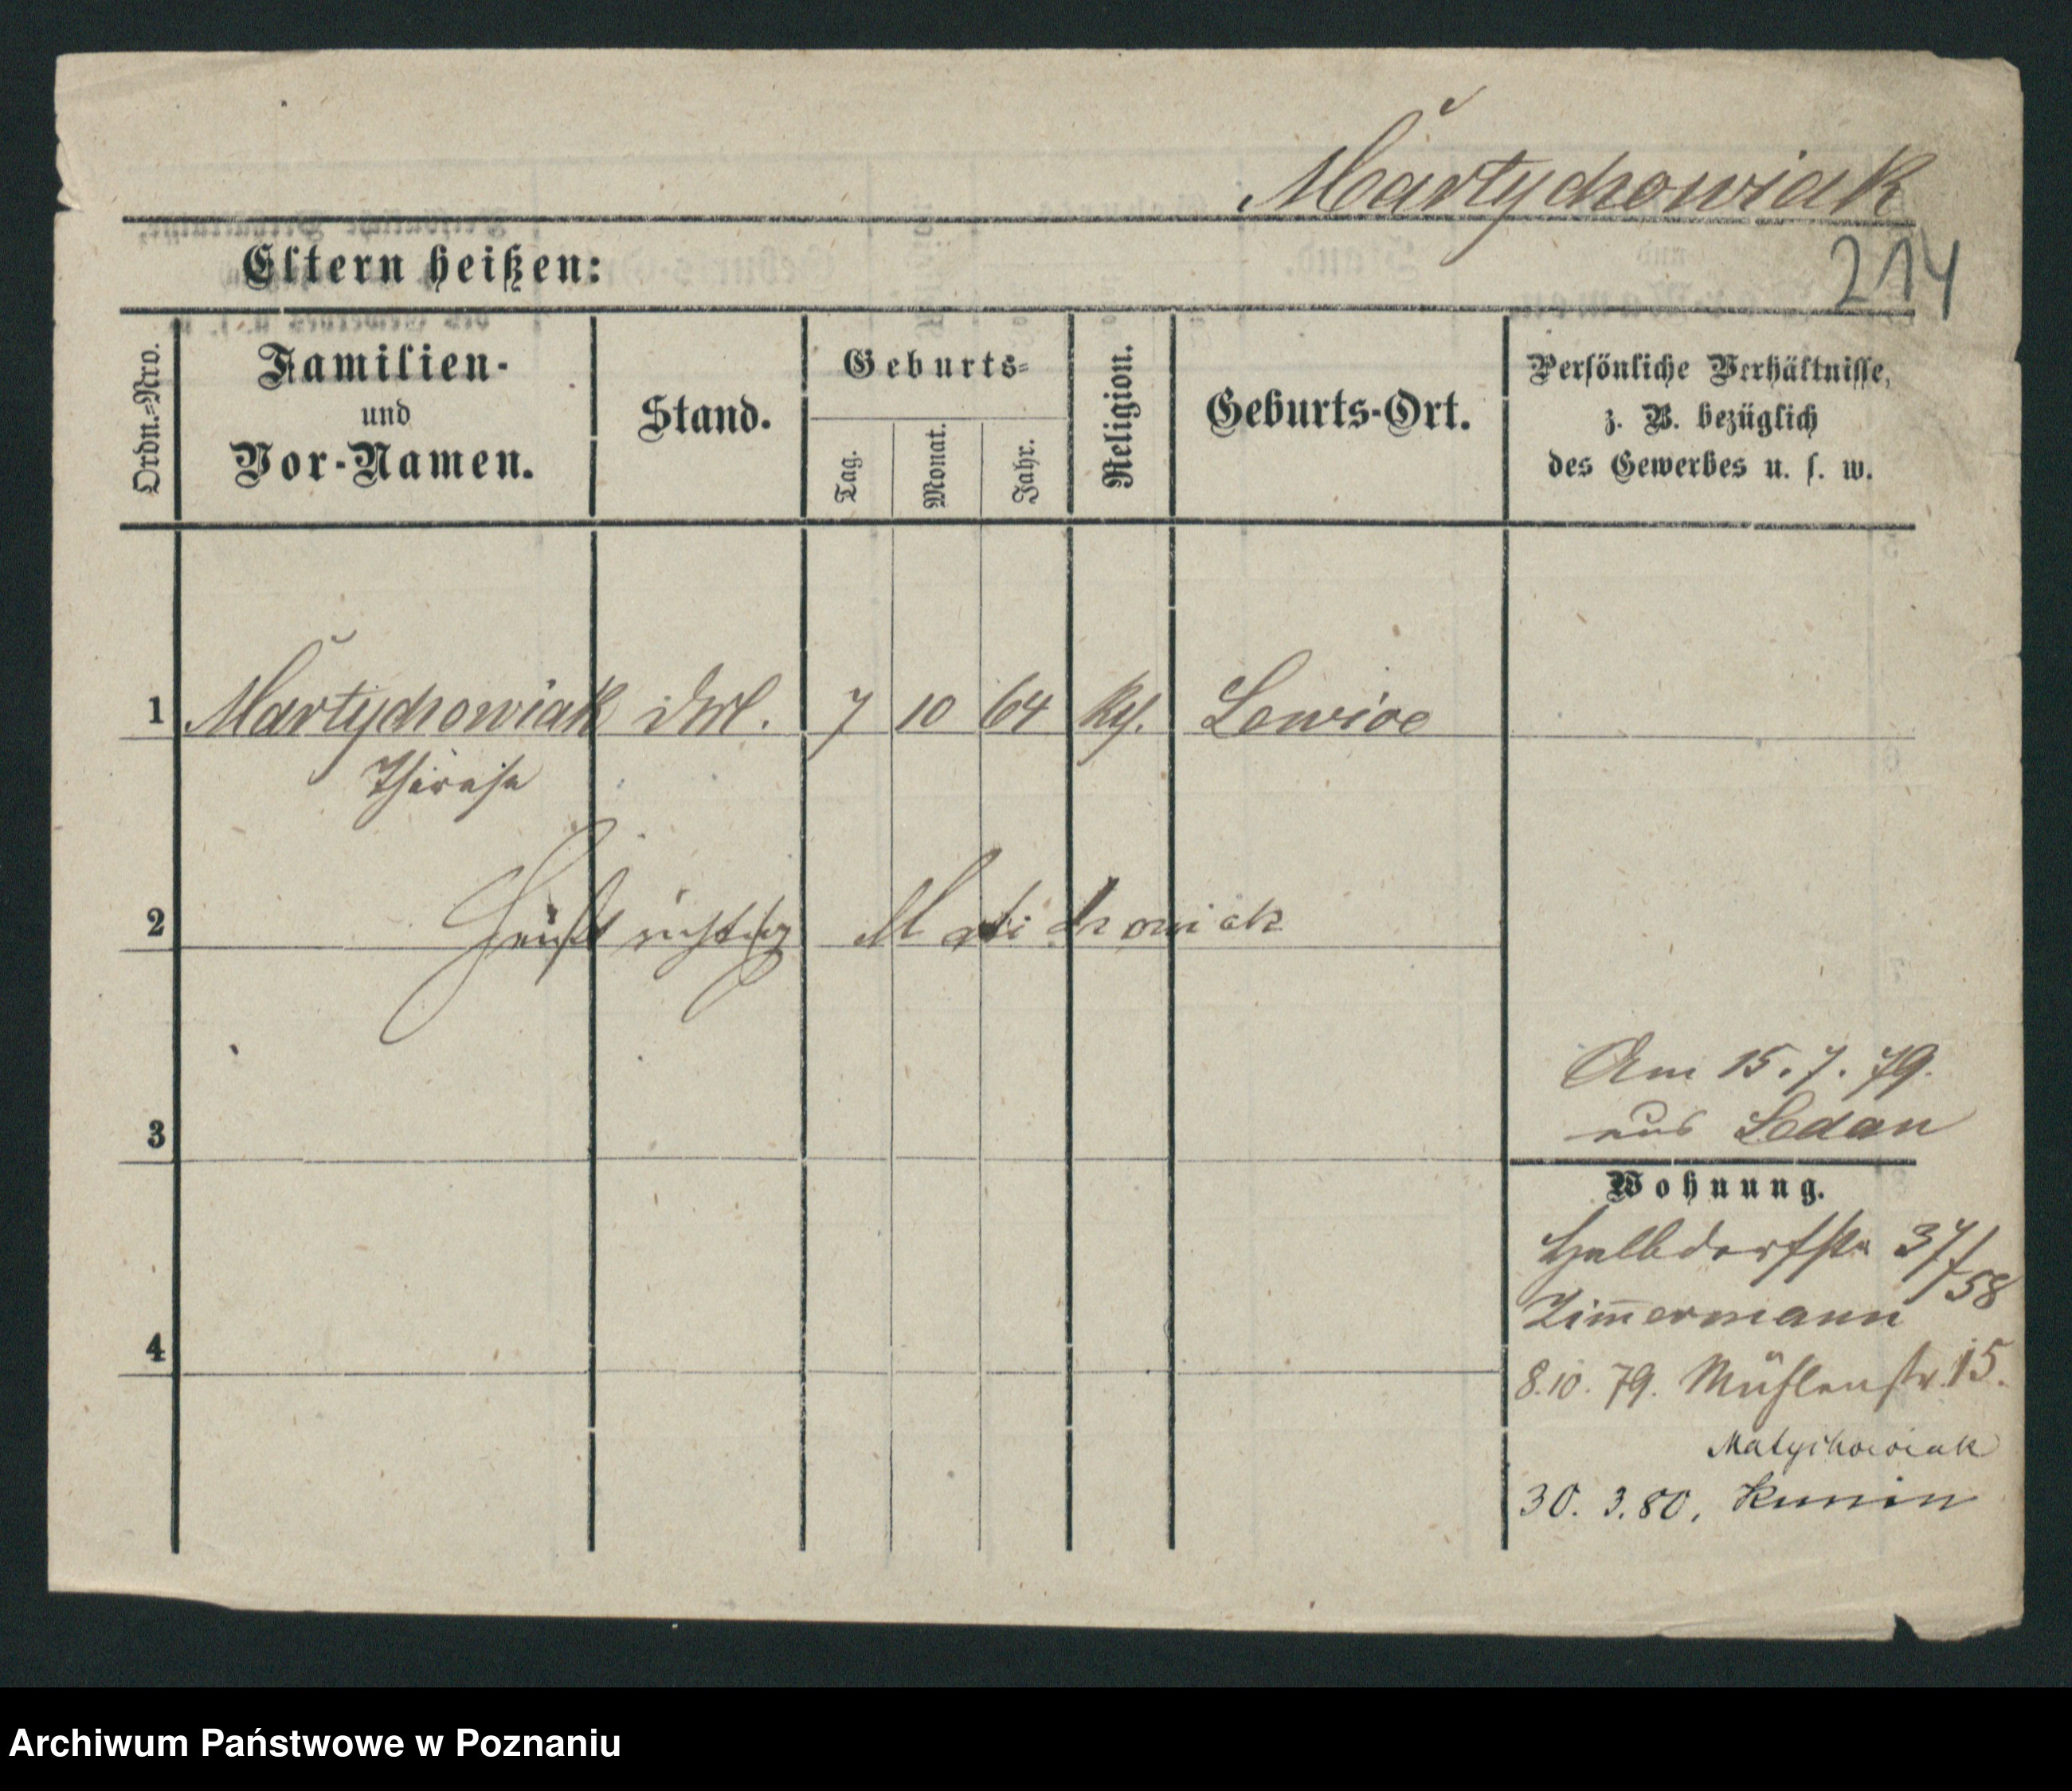 Martychowiak
214
Eltern heißen:
Ordn.=Nro.
Familien-
und
Vor-Namen.
Stand.
Geburts=
Tag.
Monat.
Jahr.
Religion.
Geburts-Ort.
Persönliche Verhältnisse,
z. B. bezüglich
des Gewerbes u. s. w.
1 Martychowiak 7 10 64 Lewice
Theresa
2 heißt richtig Matichowiak
3
4
Am 15.7.79.
aus Sedan
Wohnung.
Halbdorfstr 37/58
Zim̄ermann
8.10.79. Mühlenstr. 15.
Matychowiak
30.3.80.
Archiwum Państwowe w Poznaniu